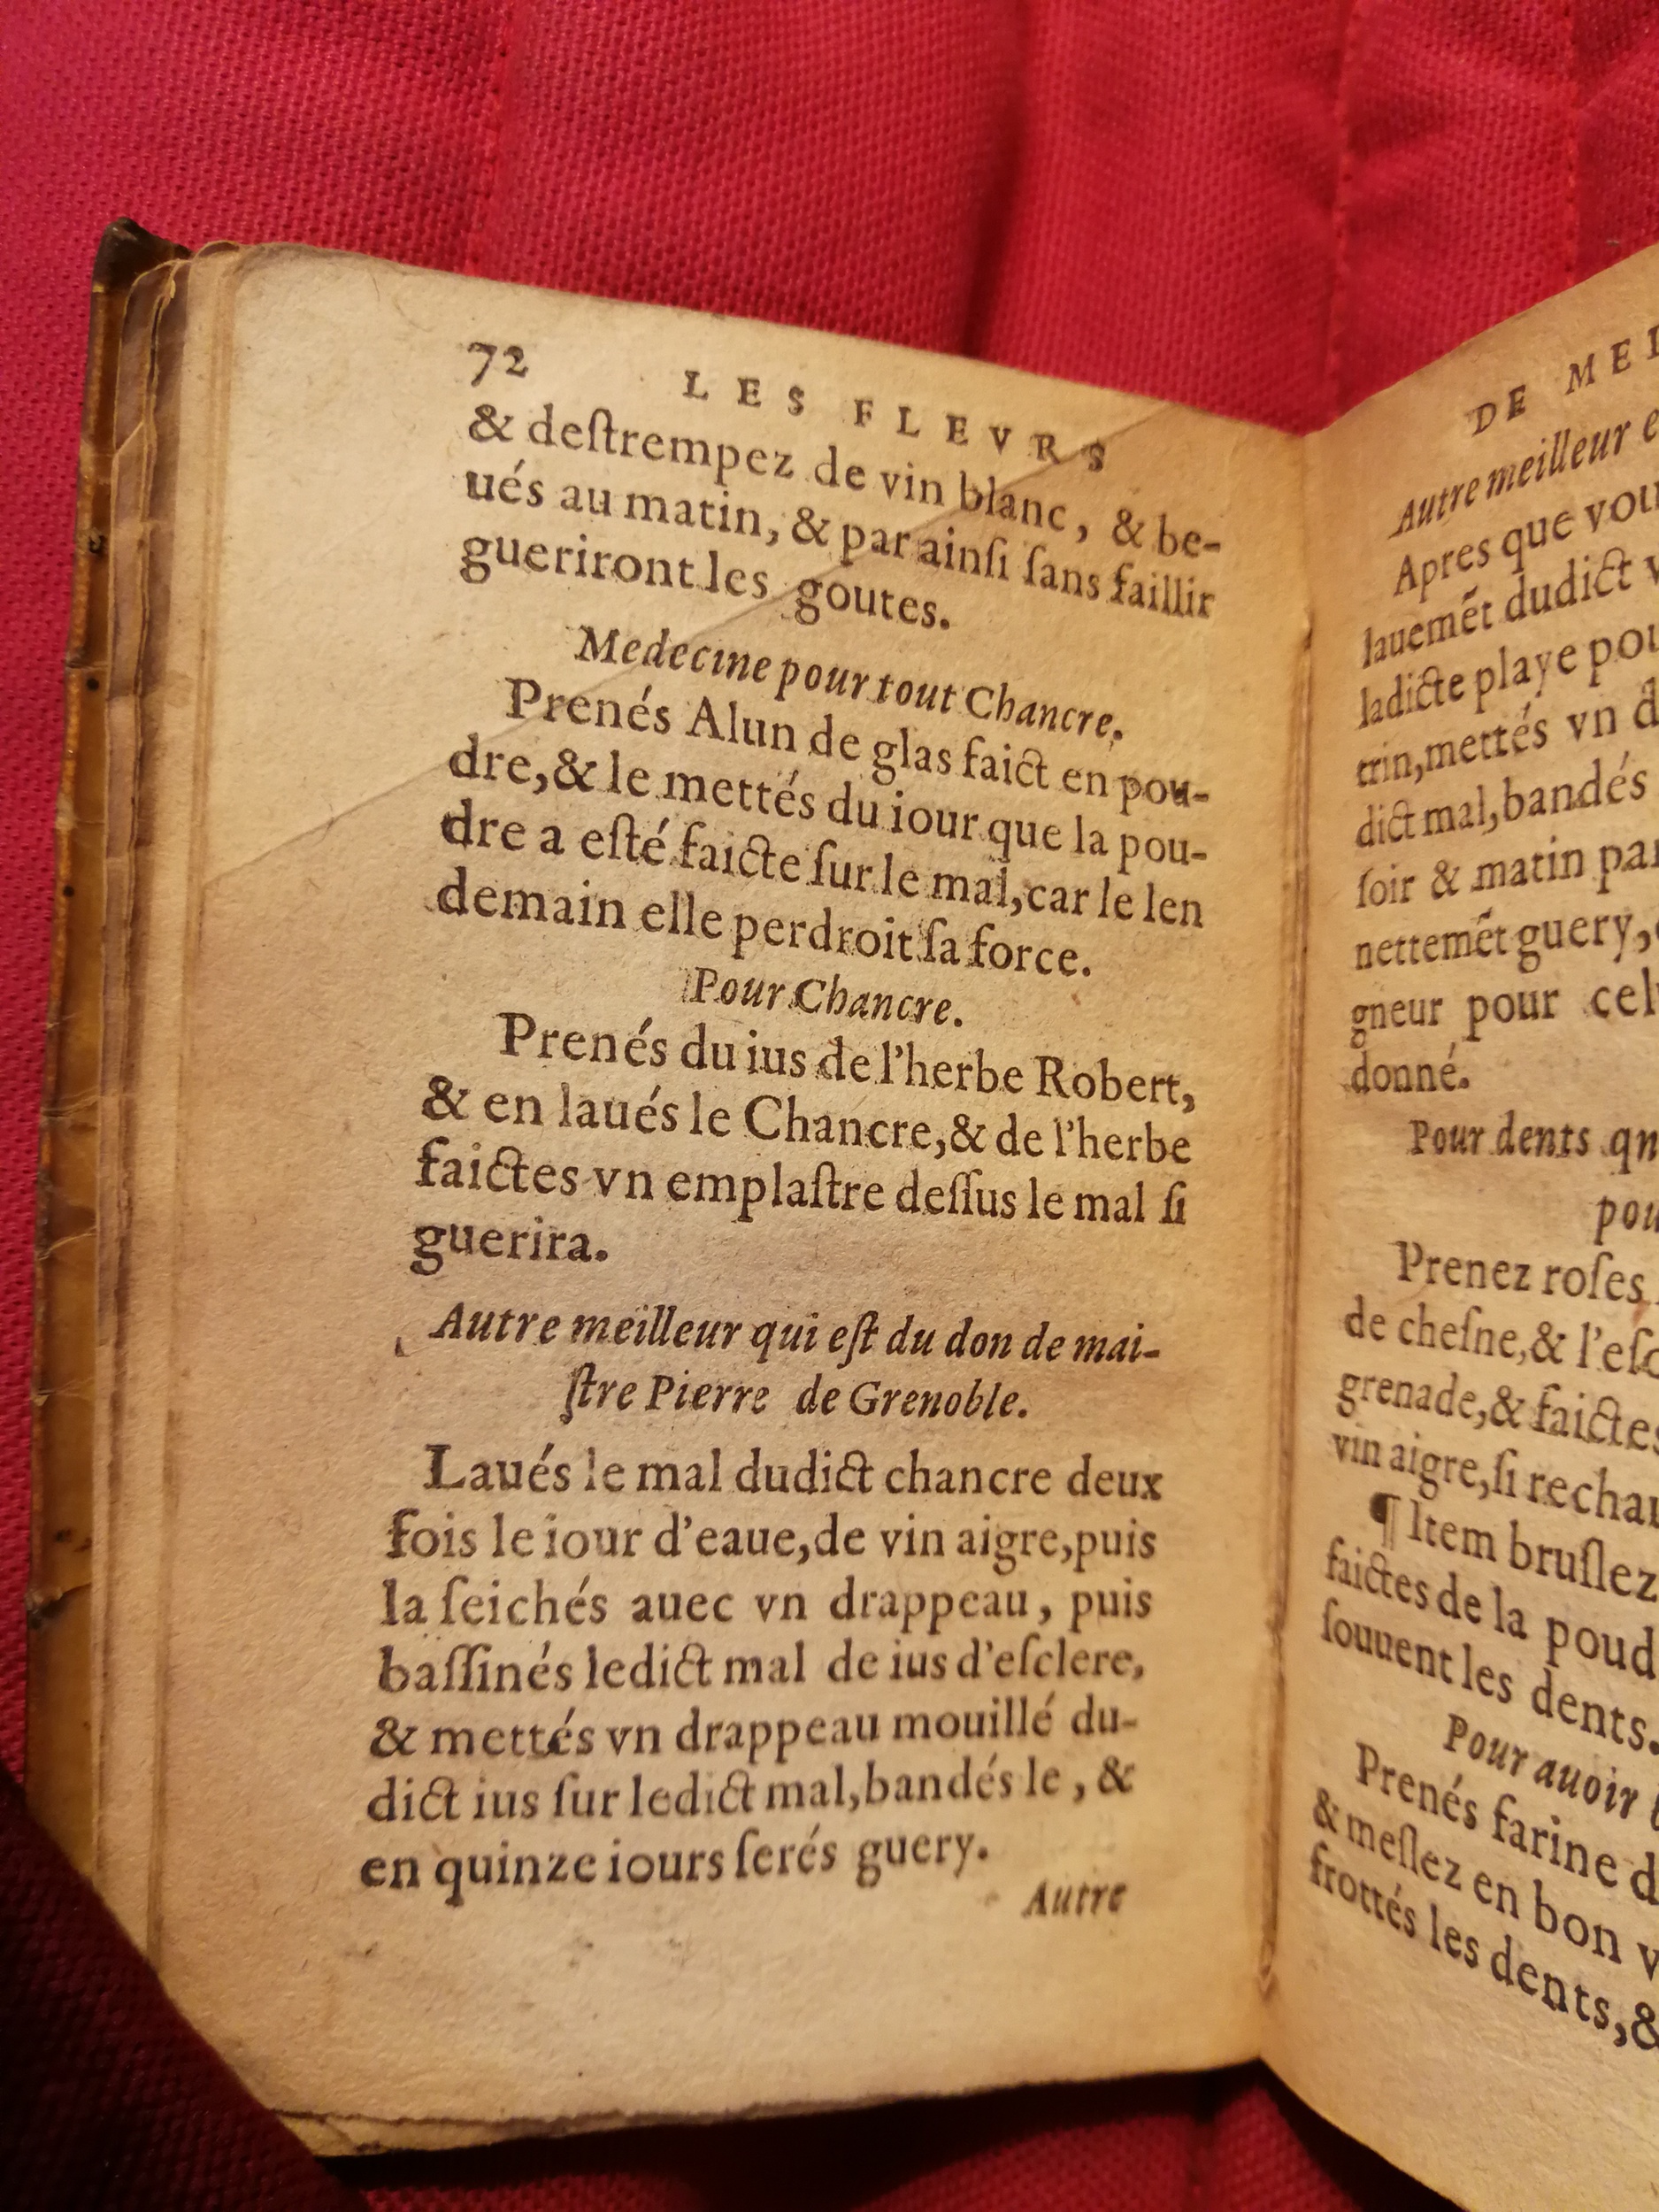 72 LES FLEVRS
& deſtrempez de vin blanc, & be-
ués au matin, & par ainſi ſans faillir
gueriront les goutes.
Medecine pour tout Chancre.
Prenés Alun de glas faict en pou-
dre, & le mettés du iour que la pou-
dre a eſté faicte ſur le mal, car le len
demain elle perdroit ſa force.
Pour Chancre.
Prenés du ius de l'herbe Robert,
& en laués le Chancre, & de l'herbe
faictes vn emplaſtre deſſus le mal ſi
guerira.
Autre meilleur qui eſt du don de mai-
ſtre Pierre de Grenoble.
Laués le mal dudict chancre deux
fois le iour d'eaue, de vin aigre, puis
la ſeichés auec vn drappeau, puis
baſſinés ledict mal de ius d'eſclere,
& mettés vn drappeau mouillé du-
dict ius ſur ledict mal, bandés le, &
en quinze iours ſerés guery.
Autre
DE
Autre meilleur
Apres que
lauemẽt dudict
ladicte playe
trin, mettés vn
dict mal, bandés
ſoir & matin
nettemẽt guery,
gneur pour
donné.
Pour dents
Prenez roſes
de cheſne, &
grenade, & faictes
vin aigre, ſi
¶ Item bruſlez
faictes de la
ſouuent les dents.
Pour auoir
Prenés farine
& meſlez en bon
frottés les dents, &